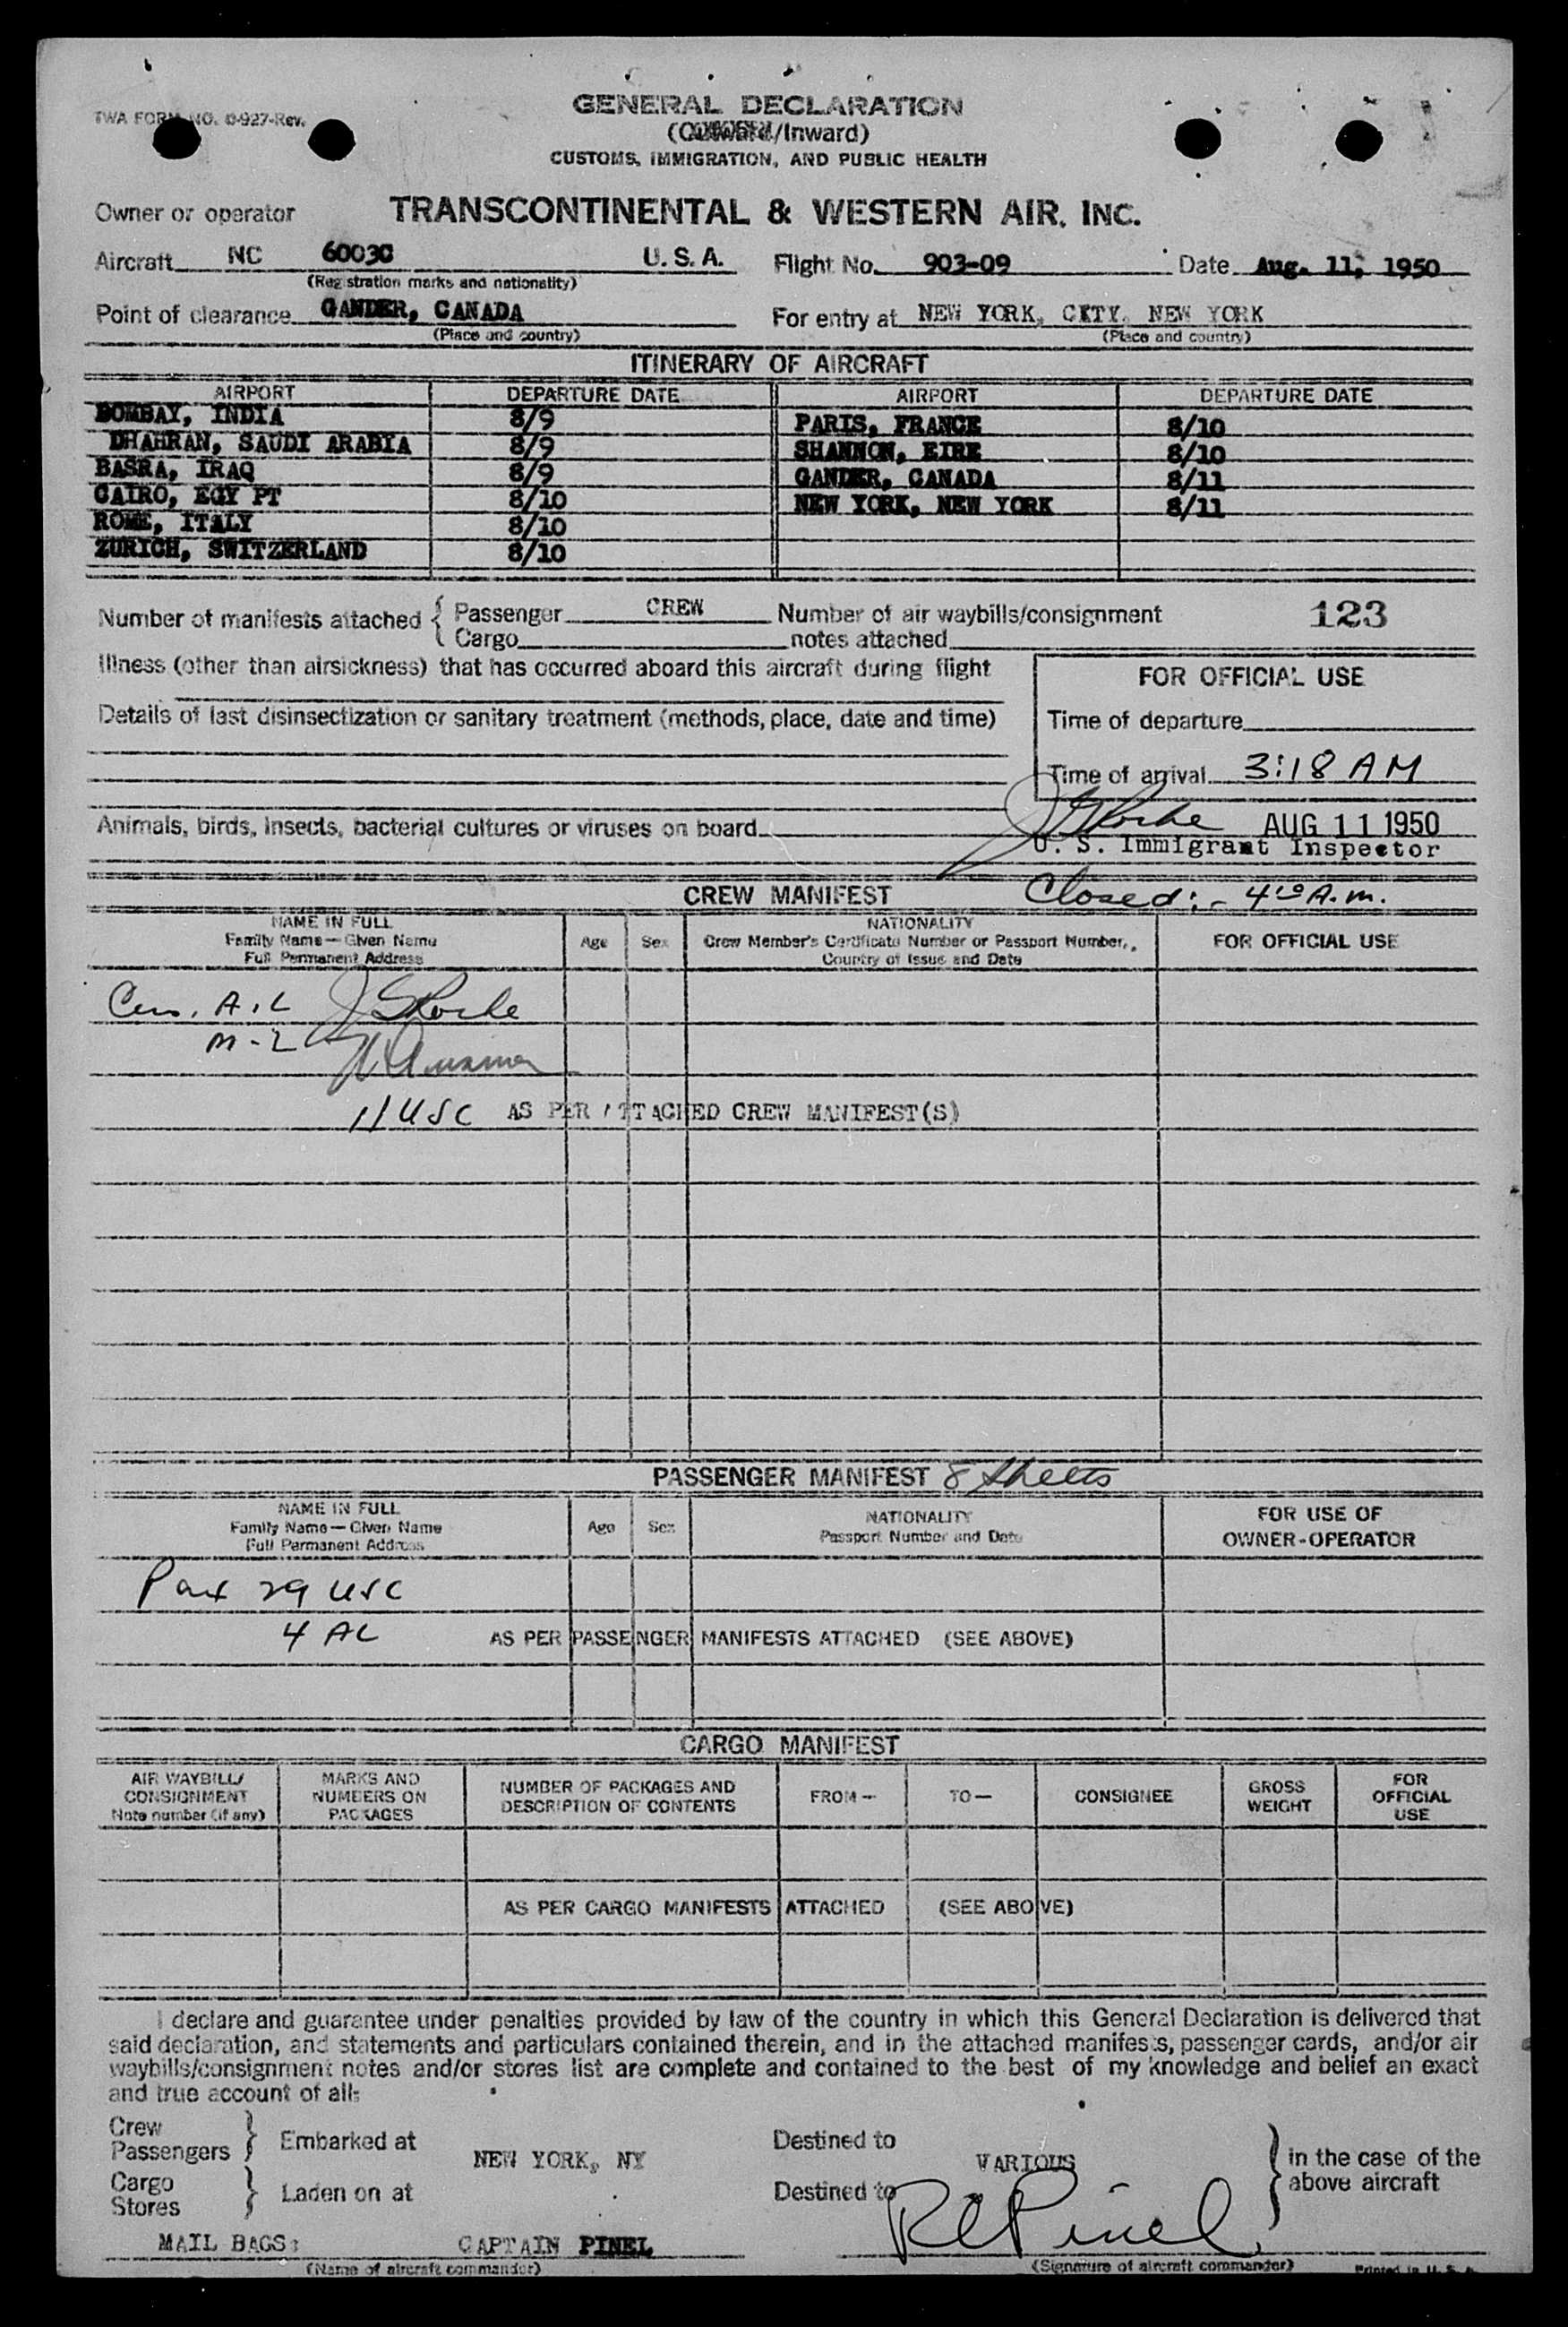 TWA FORM NO. O-927-Rev.
GENERAL DECLARATION
(Outward/Inward)
CUSTOMS, IMMIGRATION, AND PUBLIC HEALTH
Owner or operator TRANSCONTINENTAL & WESTERN AIR, INC.
Aircraft NC 6003C U. S. A. Flight No. 903-09 Date Aug. 11, 1950
(Registration marks and nationality)
Point of clearance GANDER, CANADA For entry at NEW YORK, CITY, NEW YORK
(Place and country) (Place and country)
ITINERARY OF AIRCRAFT
AIRPORT DEPARTURE DATE AIRPORT DEPARTURE DATE
BOMBAY, INDIA 8/9 PARIS, FRANCE 8/10
DHAHRAN, SAUDI ARABIA 8/9 SHANNON, EIRE 8/10
BASRA, IRAQ 8/9 GANDER, CANADA 8/11
CAIRO, EGY PT 8/10 NEW YORK, NEW YORK 8/11
ROME, ITALY 8/10
ZURICH, SWITZERLAND 8/10
Number of manifests attached { Passenger CREW Number of air waybills/consignment 123
Cargo notes attached
Illness (other than airsickness) that has occurred aboard this aircraft during flight
FOR OFFICIAL USE
Details of last disinsectization or sanitary treatment (methods, place, date and time)
Time of departure
Time of arrival 3:18 AM
Animals, birds, insects, bacterial cultures or viruses on board
AUG 11 1950
U. S. Immigrant Inspector
CREW MANIFEST Closed:- 4 10 A.m.
NAME IN FULL Age Sex NATIONALITY FOR OFFICIAL USE
Family Name—Given Name Crew Member's Certificate Number or Passport Number,
Full Permanent Address Country of Issue and Date
M-L
11 USC AS PER ATTACHED CREW MANIFEST(S)
PASSENGER MANIFEST 8 sheets
NAME IN FULL Age Sex NATIONALITY FOR USE OF
Family Name—Given Name Passport Number and Date OWNER-OPERATOR
Full Permanent Address
Pax 29 USC
4 AL AS PER PASSENGER MANIFESTS ATTACHED (SEE ABOVE)
CARGO MANIFEST
AIR WAYBILL/ MARKS AND NUMBER OF PACKAGES AND FROM— TO— CONSIGNEE GROSS FOR
CONSIGNMENT NUMBERS ON DESCRIPTION OF CONTENTS WEIGHT OFFICIAL
Note number (if any) PACKAGES USE
AS PER CARGO MANIFESTS ATTACHED (SEE ABOVE)
I declare and guarantee under penalties provided by law of the country in which this General Declaration is delivered that
said declaration, and statements and particulars contained therein, and in the attached manifests, passenger cards, and/or air
waybills/consignment notes and/or stores list are complete and contained to the best of my knowledge and belief an exact
and true account of all:
Crew
Passengers } Embarked at NEW YORK, NY Destined to VARIOUS } in the case of the
Cargo above aircraft
Stores } Laden on at Destined to
MAIL BAGS: CAPTAIN PINEL R C Pinel
(Name of aircraft commander) (Signature of aircraft commander) Printed in U. S. A.